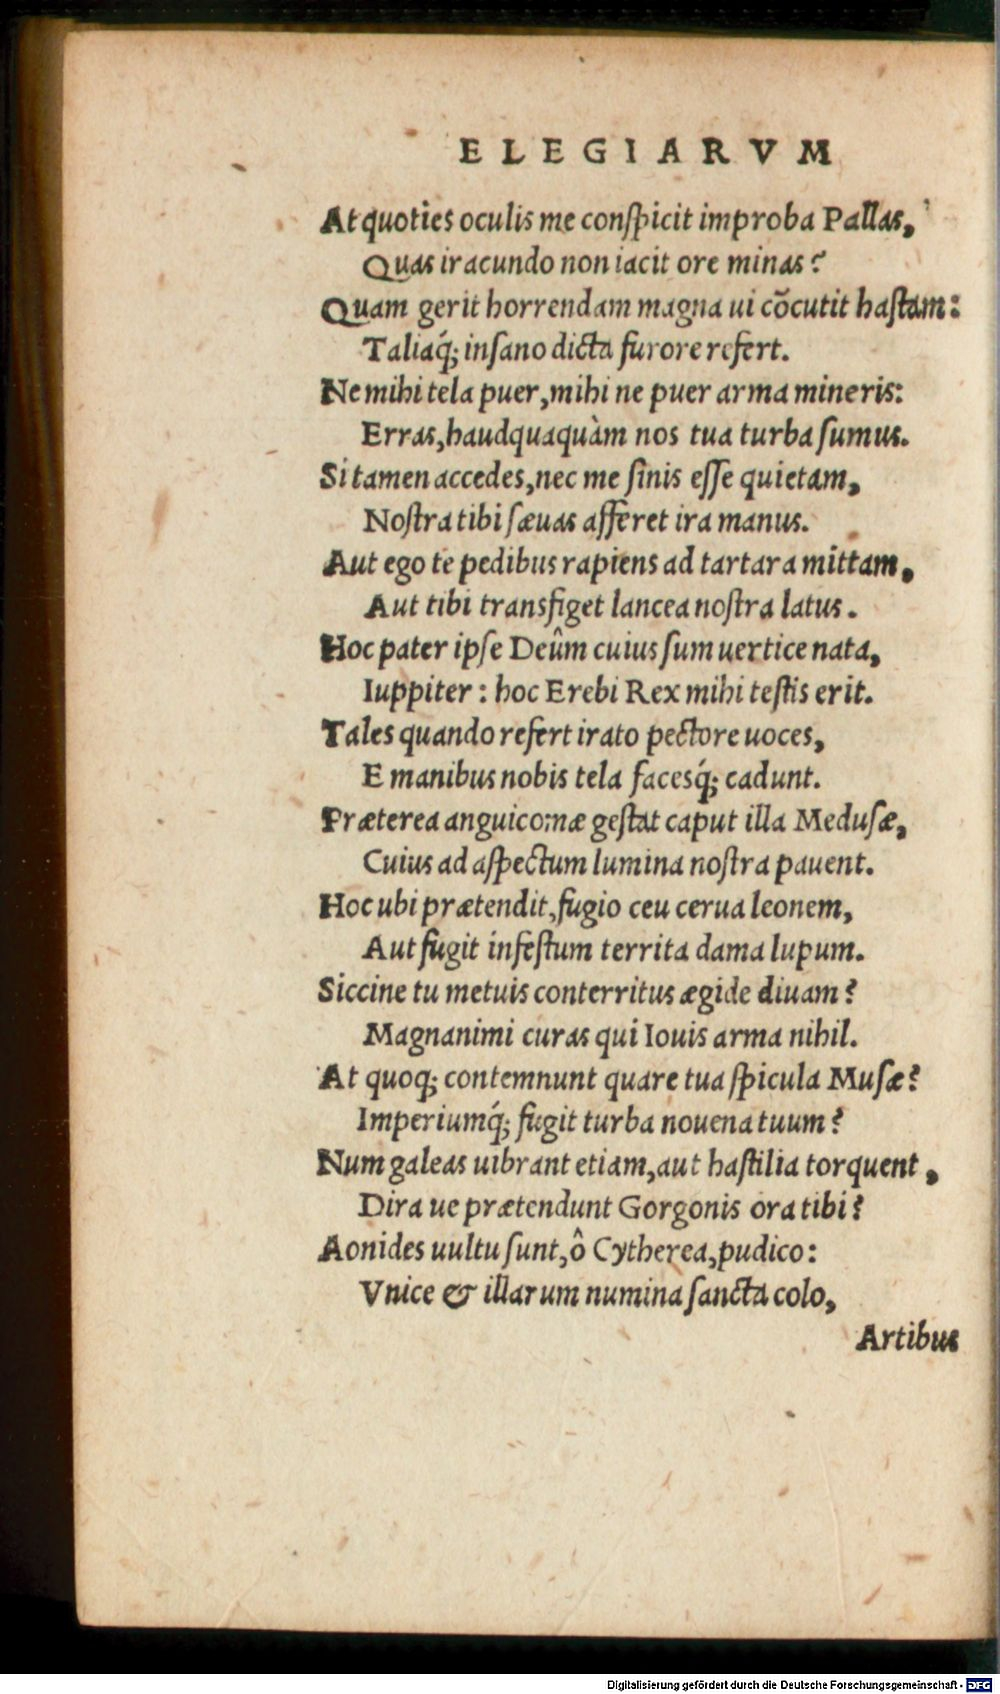 ELEGIARVM
At quoties oculis me conſpicit improba Pallas,
Quas iracundo non iacit ore minas?
Quam gerit horrendam magna ui cōcutit haſtam:
Taliaq́; inſano dicta furore refert.
Ne mihi tela puer, mihi ne puer arma mineris:
Erras, haudquaquàm nos tua turba ſumus.
Si tamen accedes, nec me ſinis eſſe quietam,
Noſtra tibi ſæuas afferet ira manus.
Aut ego te pedibus rapiens ad tartara mittam,
Aut tibi transfiget lancea noſtra latus.
Hoc pater ipſe Deûm cuius ſum uertice nata,
Iuppiter: hoc Erebi Rex mihi teſtis erit.
Tales quando refert irato pectore uoces,
E manibus nobis tela facesq́; cadunt.
Præterea anguicomæ geſtat caput illa Meduſæ,
Cuius ad aſpectum lumina noſtra pauent.
Hoc ubi prætendit, fugio ceu cerua leonem,
Aut fugit infeſtum territa dama lupum.
Siccine tu metuis conterritus ægide diuam?
Magnanimi curas qui Iouis arma nihil.
At quoq; contemnunt quare tua ſpicula Muſæ?
Imperiumq́; fugit turba nouena tuum?
Num galeas uibrant etiam, aut haſtilia torquent,
Dira ue prætendunt Gorgonis ora tibi?
Aonides uultu ſunt, ô Cytherea, pudico:
Vnice & illarum numina ſancta colo,
Artibus
Digitalisierung gefördert durch die Deutsche Forschungsgemeinschaft - DFG